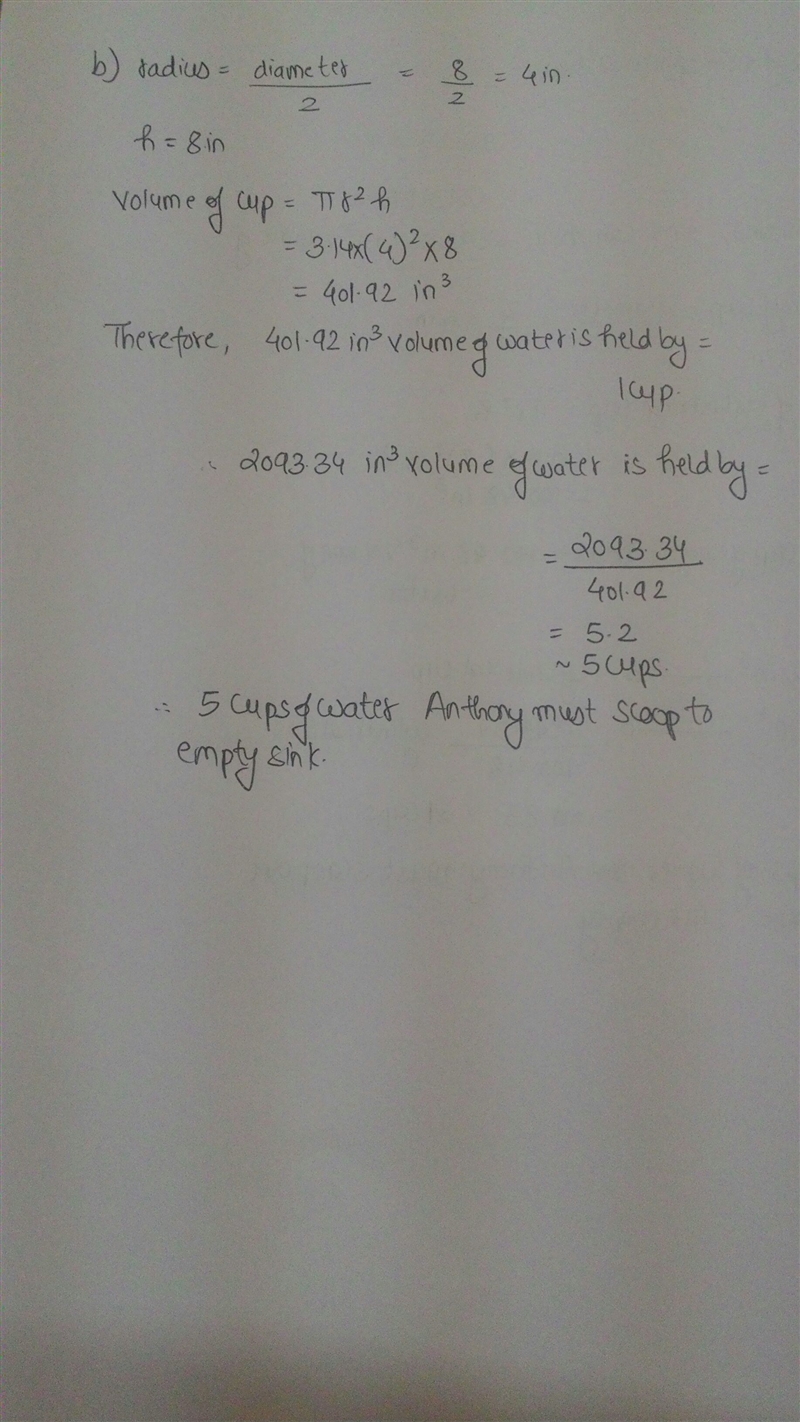 b) radius = diameter/2 = 8/2 = 4in.
h = 8in
Volume of cup = πr²h
= 3.14x(4)²x8
= 401.92 in³
Therefore, 401.92 in³ volume of water is held by =
1cup.
∴ 2093.34 in³ volume of water is held by =
= 2093.34/401.92
= 5.2
~ 5cups.
∴ 5 cups of water Anthony must scoop to
empty sink.